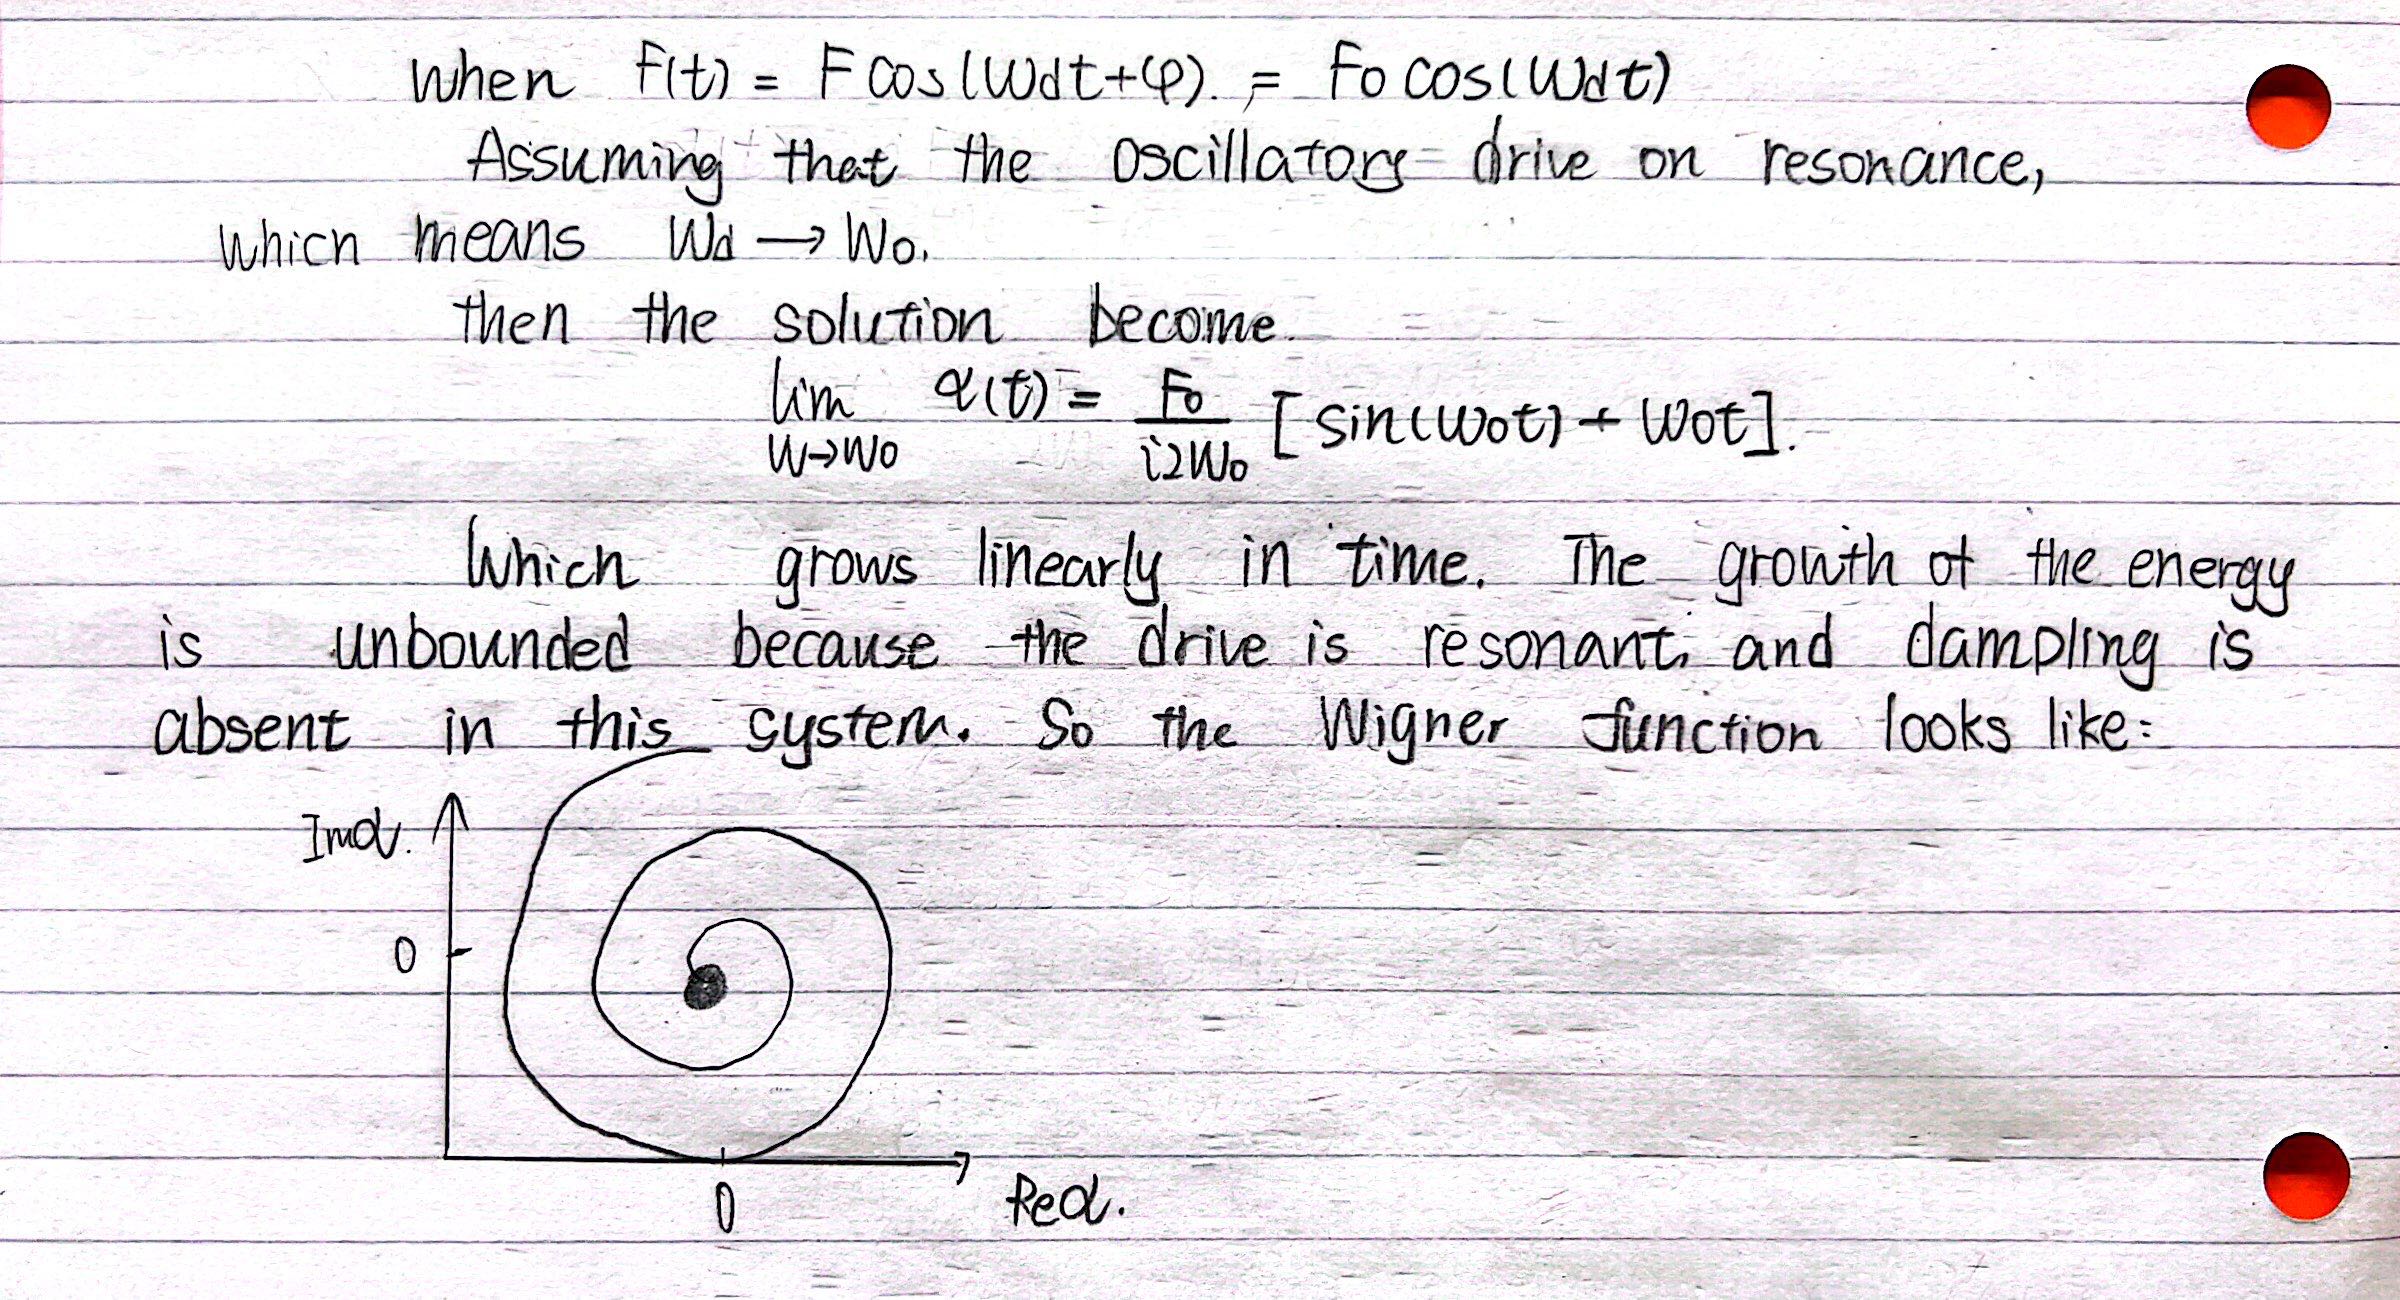 When F(t) = F cos(Wdt+φ). = Fo cos(Wdt)
Assuming that the oscillatory drive on resonance,
which means Wd → Wo.
then the solution become.
lim α(t) = Fo/i2Wo [sin(Wot) + Wot].
W→Wo
Which grows linearly in time. The growth of the energy
is unbounded because the drive is resonant. and dampling is
absent in this system. So the Wigner function looks like:
Imα.
0
0
Reα.